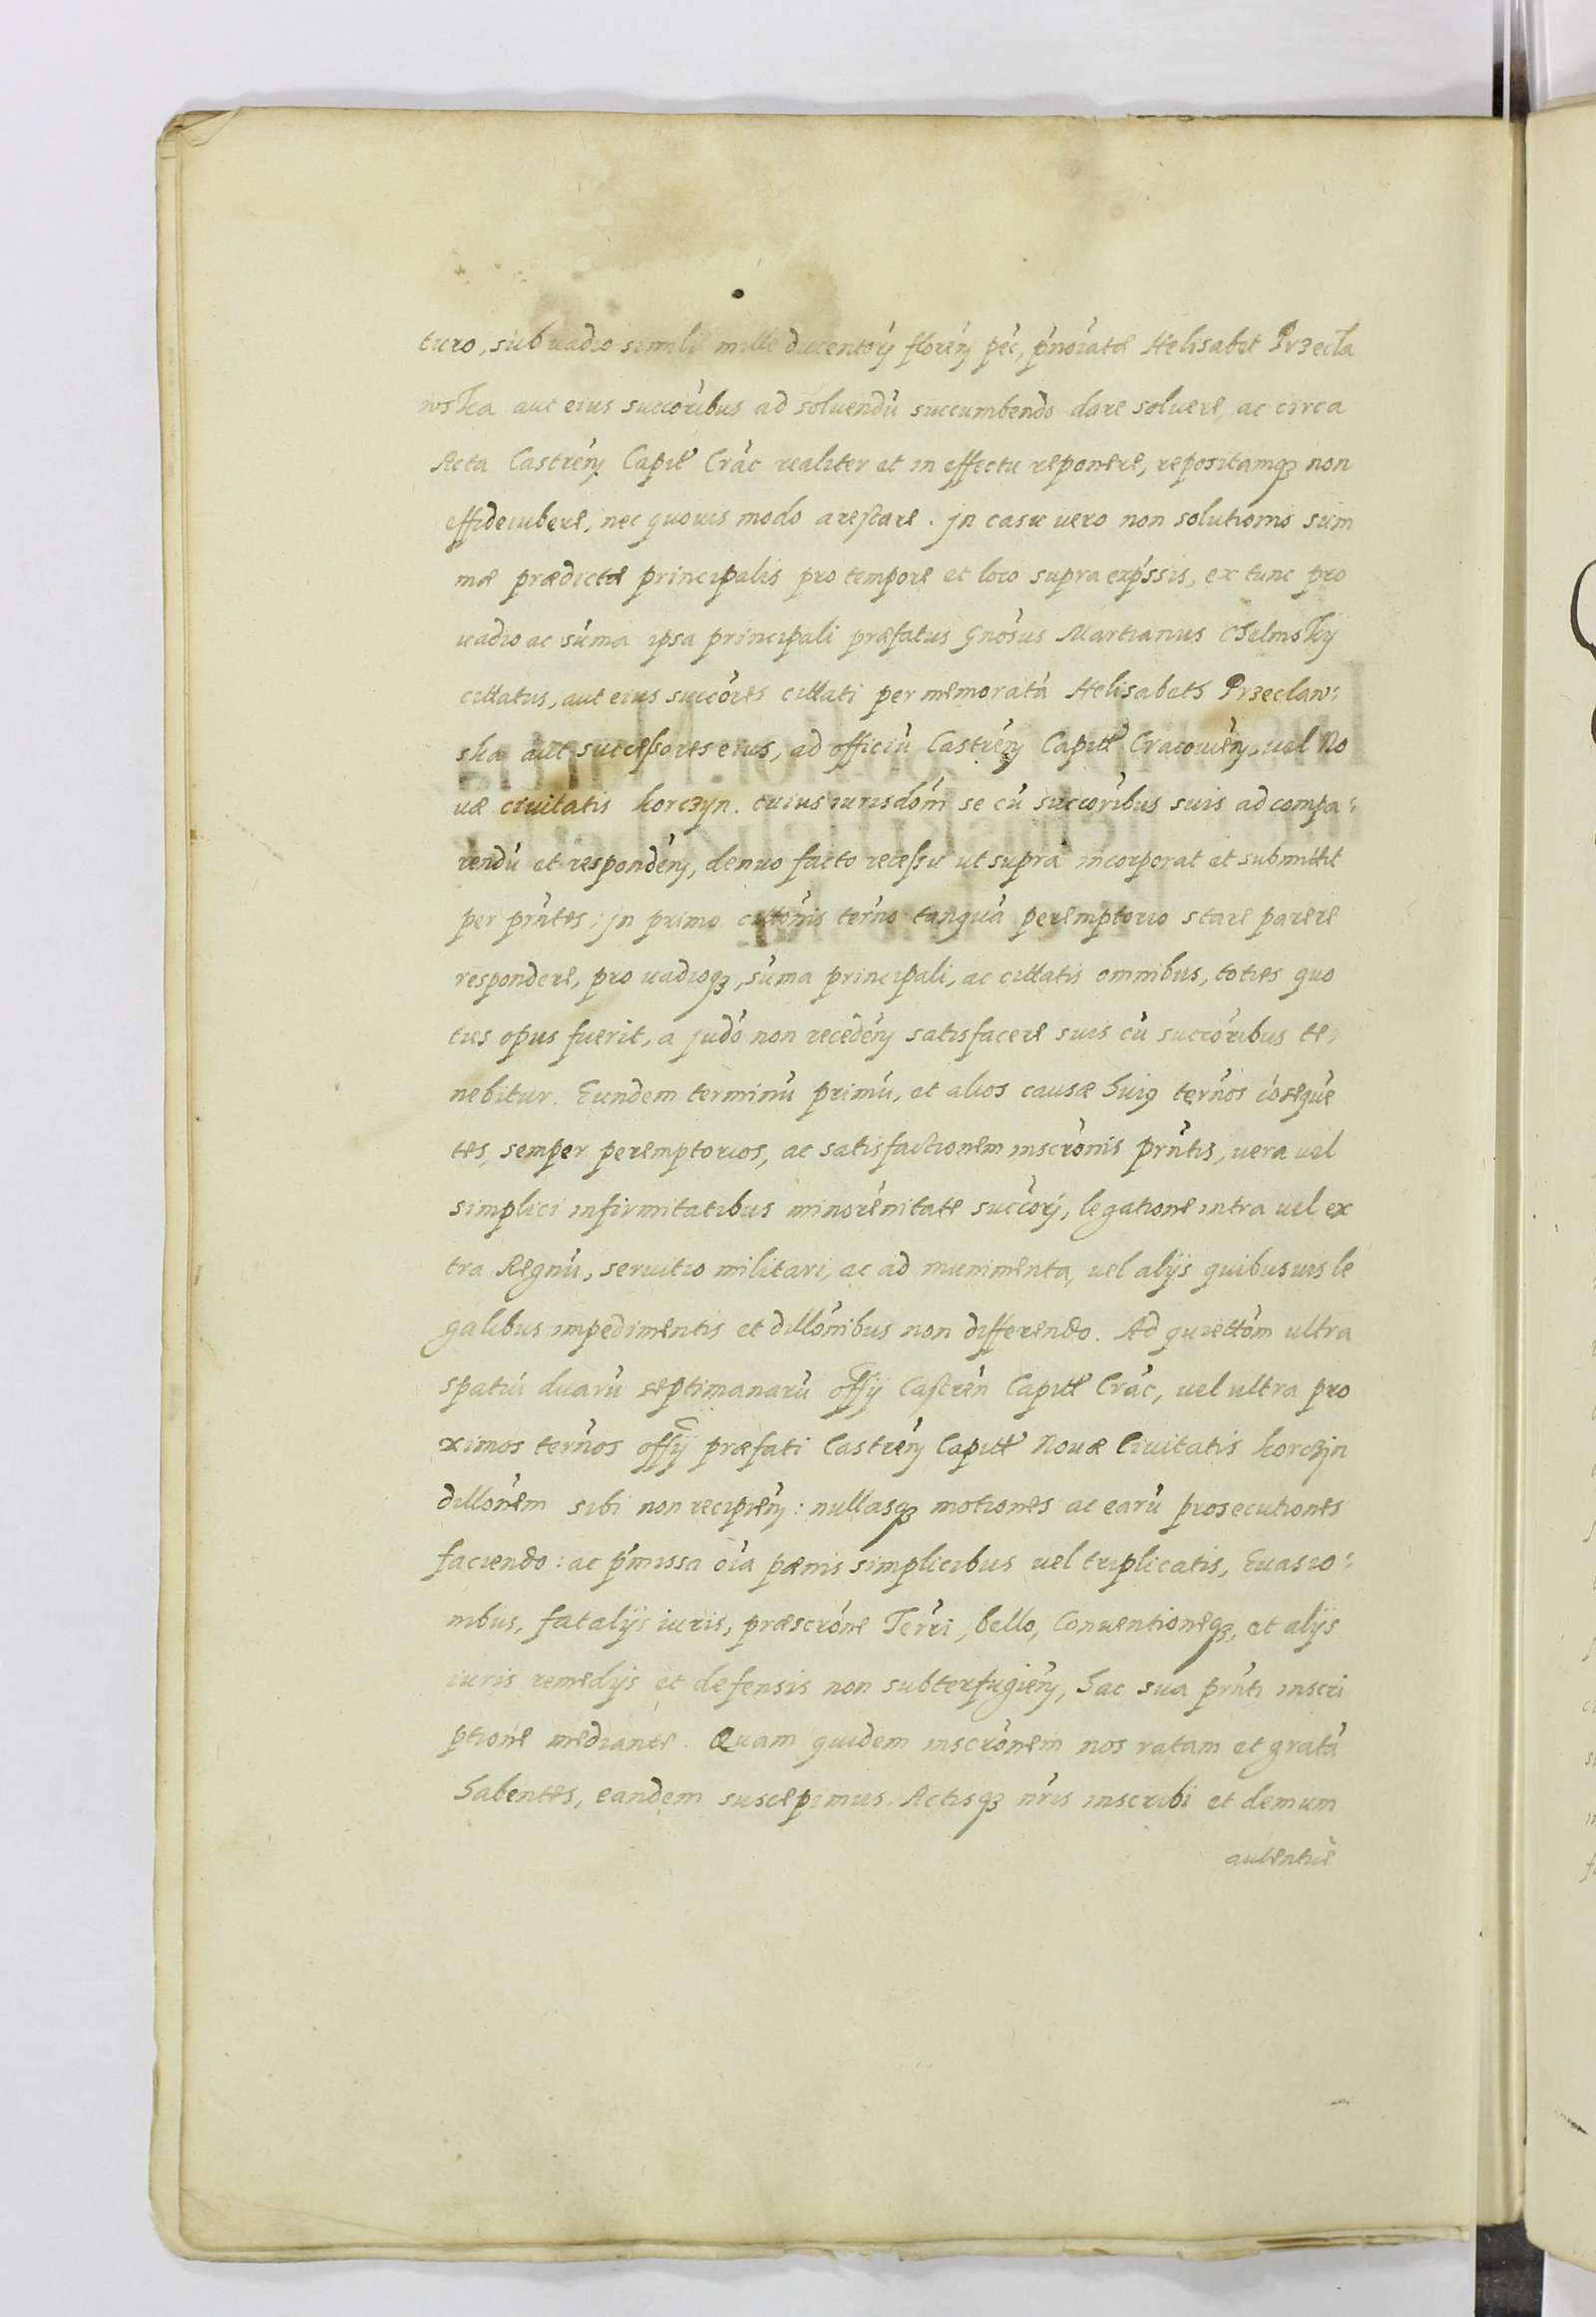 turo, sub uadio simili mille ducentorỹ florenỹ pec̃, p̃noĩatæ Helisabet Przecła
wska aut eius succor̃ibus ad soluendũ succumbendo dare soluere, ac circa
Acta Castrenỹ Capit̃ Crac̃ realiter et in effectu reponere, repositamqꝫ non
effideiubere, nec quouis modo arestare. jn casu uero non solutionis sum
mæ prædictæ principalis pro tempore et loco supra exp̃ssis, ex tunc pro
uadio ac sũma ipsa principali præfatus Gnõsus Martianus Chelmsky
cittatus, aut eius succor̃es cittati per memoratã Helisabeth Przeclaw:
ska aut successores eius, ad officiũ Castrenỹ Capitt̃ Cracouienỹ, uel No
uæ ciuitatis korczyn. cuius iurisdõm se cũ succor̃ibus suis ad compa:
rendũ et respondenỹ, denuo facto recessu ut supra incorporat et submittit
per prñtes: jn primo cittõnis ter̃no tanquã peremptorio stare parere
respondere, pro uadioqꝫ, sũma principali, ac cittatis omnibus, toties quo
ties opus fuerit, a judõ non recedenỹ satisfacere suis cũ succor̃ibus te:
nebitur. Eundem terminũ primũ, et alios causæ huiꝯ ter̃nos cõseque
tes, semper peremptorios, ac satisfactionem inscrõnis prñtis, uera uel
simplici infirmitatibus minorenñitate succorỹ, legatione intra uel ex
tra Regnũ, seruitio militari, ac ad munimenta, uel alijs quibusuis le
galibus impedimentis et dillõnibus non differendo. Ad quiettõm ultra
spatiũ duarũ septimanarũ offỹ Castreñ Capitt̃ Crac̃, uel ultra pro
ximos ter̃nos offỹ præfati Castrenỹ Capitt̃ Nouæ Ciuitatis korczyn
dillõnem sibi non recipienỹ: nullasqꝫ motiones ac earũ prosecutiones
faciendo: ac p̃missa oĩa pænis simplicibus uel triplicatis, Euasio:
nibus, fatalijs iuris, præscrõne Ter̃ri, bello, Conuentioneqꝫ, et alijs
iuris remedijs et defensis non subterfugienỹ, hac sua prñti inscri
ptione mediante. Quam quidem inscrõnem nos ratam et gratã
habentes, eandem suscepimus. Actisqꝫ nr̃is inscribi et demum
autentice